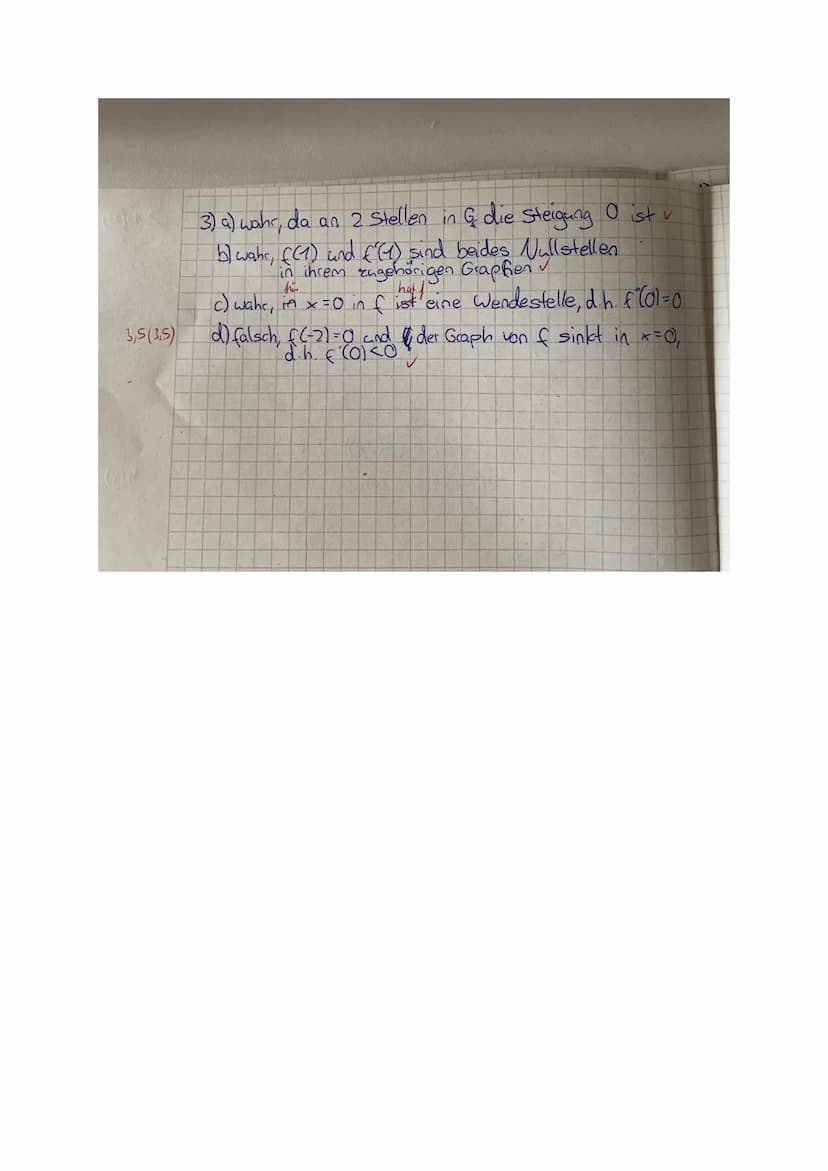 3) a) wahr, da an 2 Stellen in G_f die Steigung 0 ist ✓
b) wahr, f(1) und f'(1) sind beides Nullstellen
in ihrem zugehörigen Graphen ✓
für hat f
c) wahr, in x=0 in f ist eine Wendestelle, d.h. f''(0)=0
3,5 (3,5) d) falsch, f(-2)=0 und der Graph von f sinkt in x=0,
d.h. f'(0)<0 ✓